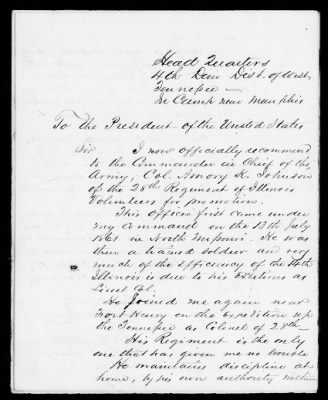 Head Quarters
4th Div Dist. of West
Tennessee —
In Camp near Memphis
To the President of the United States
Sir. I now officially recommend
to the Commander in Chief of the
Army, Col. Amory K. Johnson
of the 28th Regiment of Illinois
Volunteers for promotion.
This officer first came under
my command on the 13th July
1861 in North Missouri. He was
then a trained soldier and very
much of the efficiency of the 14th
Illinois is due to his exertions as
Lieut Col.
He joined me again near
Fort Henry on the expedition up
the Tennessee as Colonel of 28th
His Regiment is the only
one that has given me no trouble
He maintains discipline at
home, by his own authority within